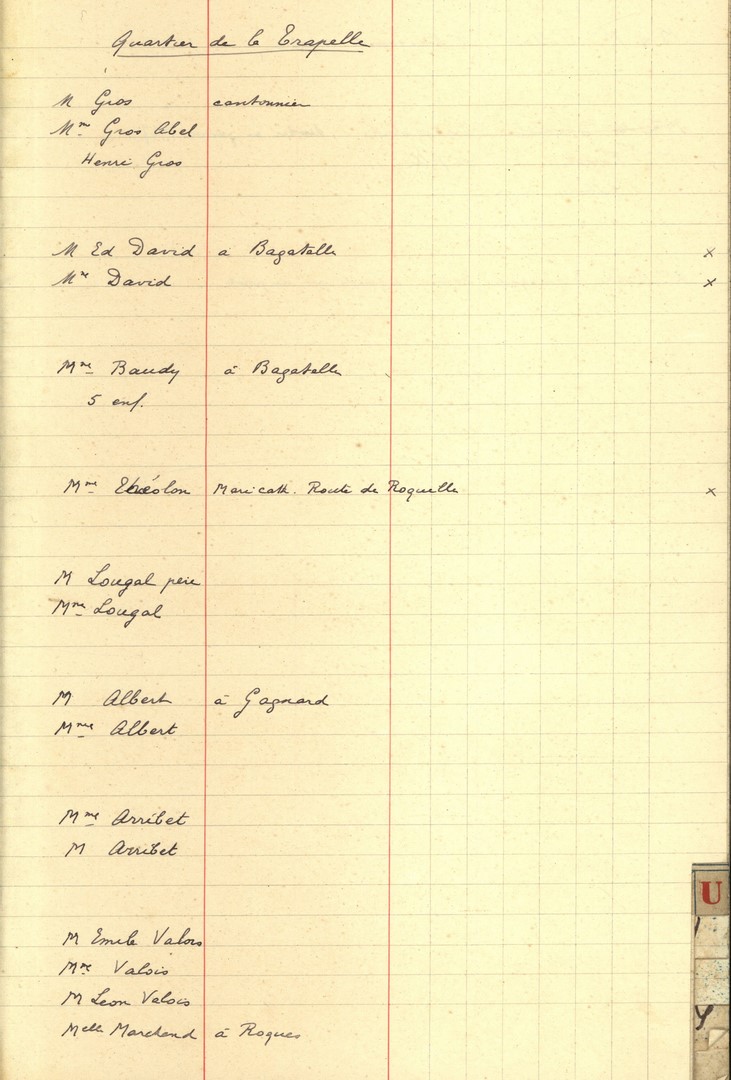 Quartier de la Trapelle
M Gros cantonnier
Mme Gros Abel
Henri Gros
M Ed David à Bagatelle x
Me David x
Mme Baudy à Bagatelle
5 enf.
Mme Maricath. Route de Roquille x
M Lougal père
Mme Lougal
M Albert à Gagnard
Mme Albert
Mme Arribet
M Arribet
M Emile Valois
Me Valois
M Leon Valois
Melle Marchand à Roques
U